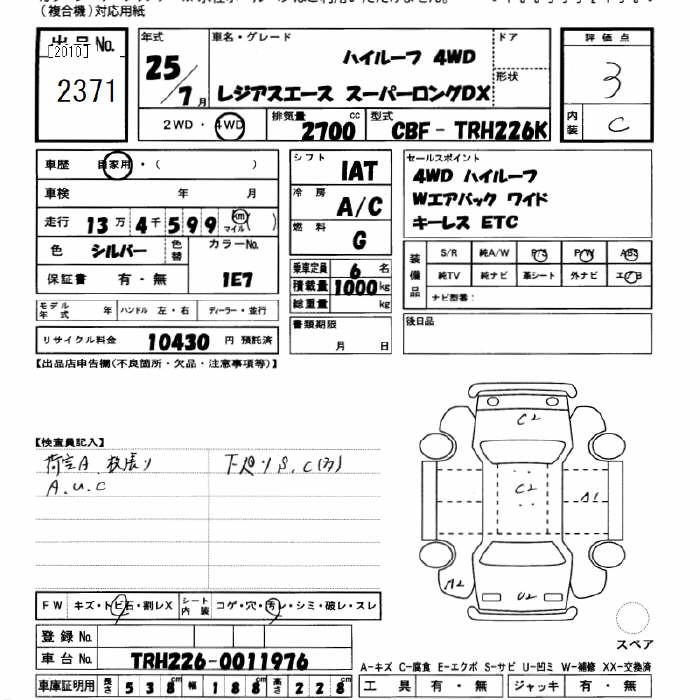 （複合機）対応用紙
出品No.
[2010]
2371
年式
25/7月
車名・グレード
ハイルーフ 4WD
レジアスエース スーパーロングDX
ドア
形状
評価点
3
内装
C
2WD・4WD
排気量 2700 cc
型式 CBF-TRH226K
車歴 自家用・（ ）
車検 年 月
走行 13万4千599 km マイル（ ）
色 シルバー 色替 カラーNo. 1E7
保証書 有・無
モデル年式 年 ハンドル 左・右 ディーラー・並行
リサイクル料金 10430 円 預託済
シフト IAT
冷房 A/C
燃料 G
乗車定員 6 名
積載量 1000 kg
総重量 kg
書類期限
月 日
セールスポイント
4WD ハイルーフ
Wエアバック ワイド
キーレス ETC
装備品
S/R 純A/W P/S P/W ABS
純TV 純ナビ 革シート 外ナビ エアB
ナビ型番：
後日品
【出品店申告欄(不良箇所・欠品・注意事項等)】
【検査員記入】
荷室A、板張り
下廻りS、C(有)
A.U.C
C2
C2
A1
A2
U2
FW キズ・トビ石・割レX シート内装 コゲ・穴・汚レ・シミ・破レ・スレ
登録No.
車台No. TRH226-0011976
車庫証明用 長さ 538cm 幅 188cm 高さ 228cm
スペア
A-キズ C-腐食 E-エクボ S-サビ U-凹ミ W-補修 XX-交換済
工具 有・無 ジャッキ 有・無